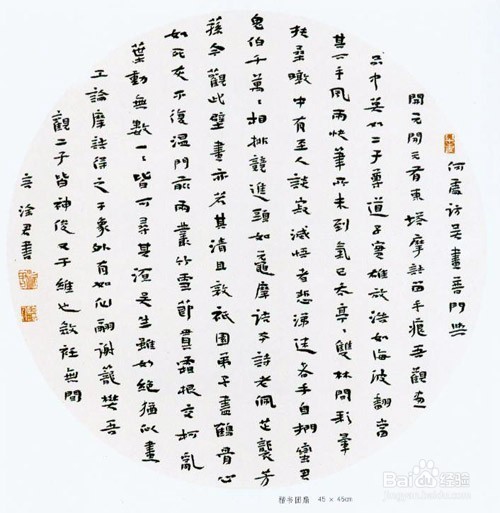 何處訪吴畫普門與
開元開元有東塔摩詰留手痕吾觀畫
品中莫如二子尊道子實雄放浩如海波翻當
其下手風雨快筆所未到氣已吞亭〻雙林間彩暈
扶桑暾中有至人談寂滅悟者悲涕迷者手自捫蠻君
鬼伯千萬〻相排競進頭如黿摩詰本詩老佩芷襲芳
蓀今觀此壁畫亦若其清且敦祇園弟子盡鶴骨心
如死灰不復溫門前兩叢竹雪節貫霜根交柯亂
葉動無數一〻皆可尋其源吴生雖妙絕猶以畫
工論摩詰得之于象外有如仙翮謝籠樊吾
觀二子皆神俊又于維也斂衽無間
言 君書
楷书团扇 45 × 45cm
Baidu经验
jingyan.baidu.com